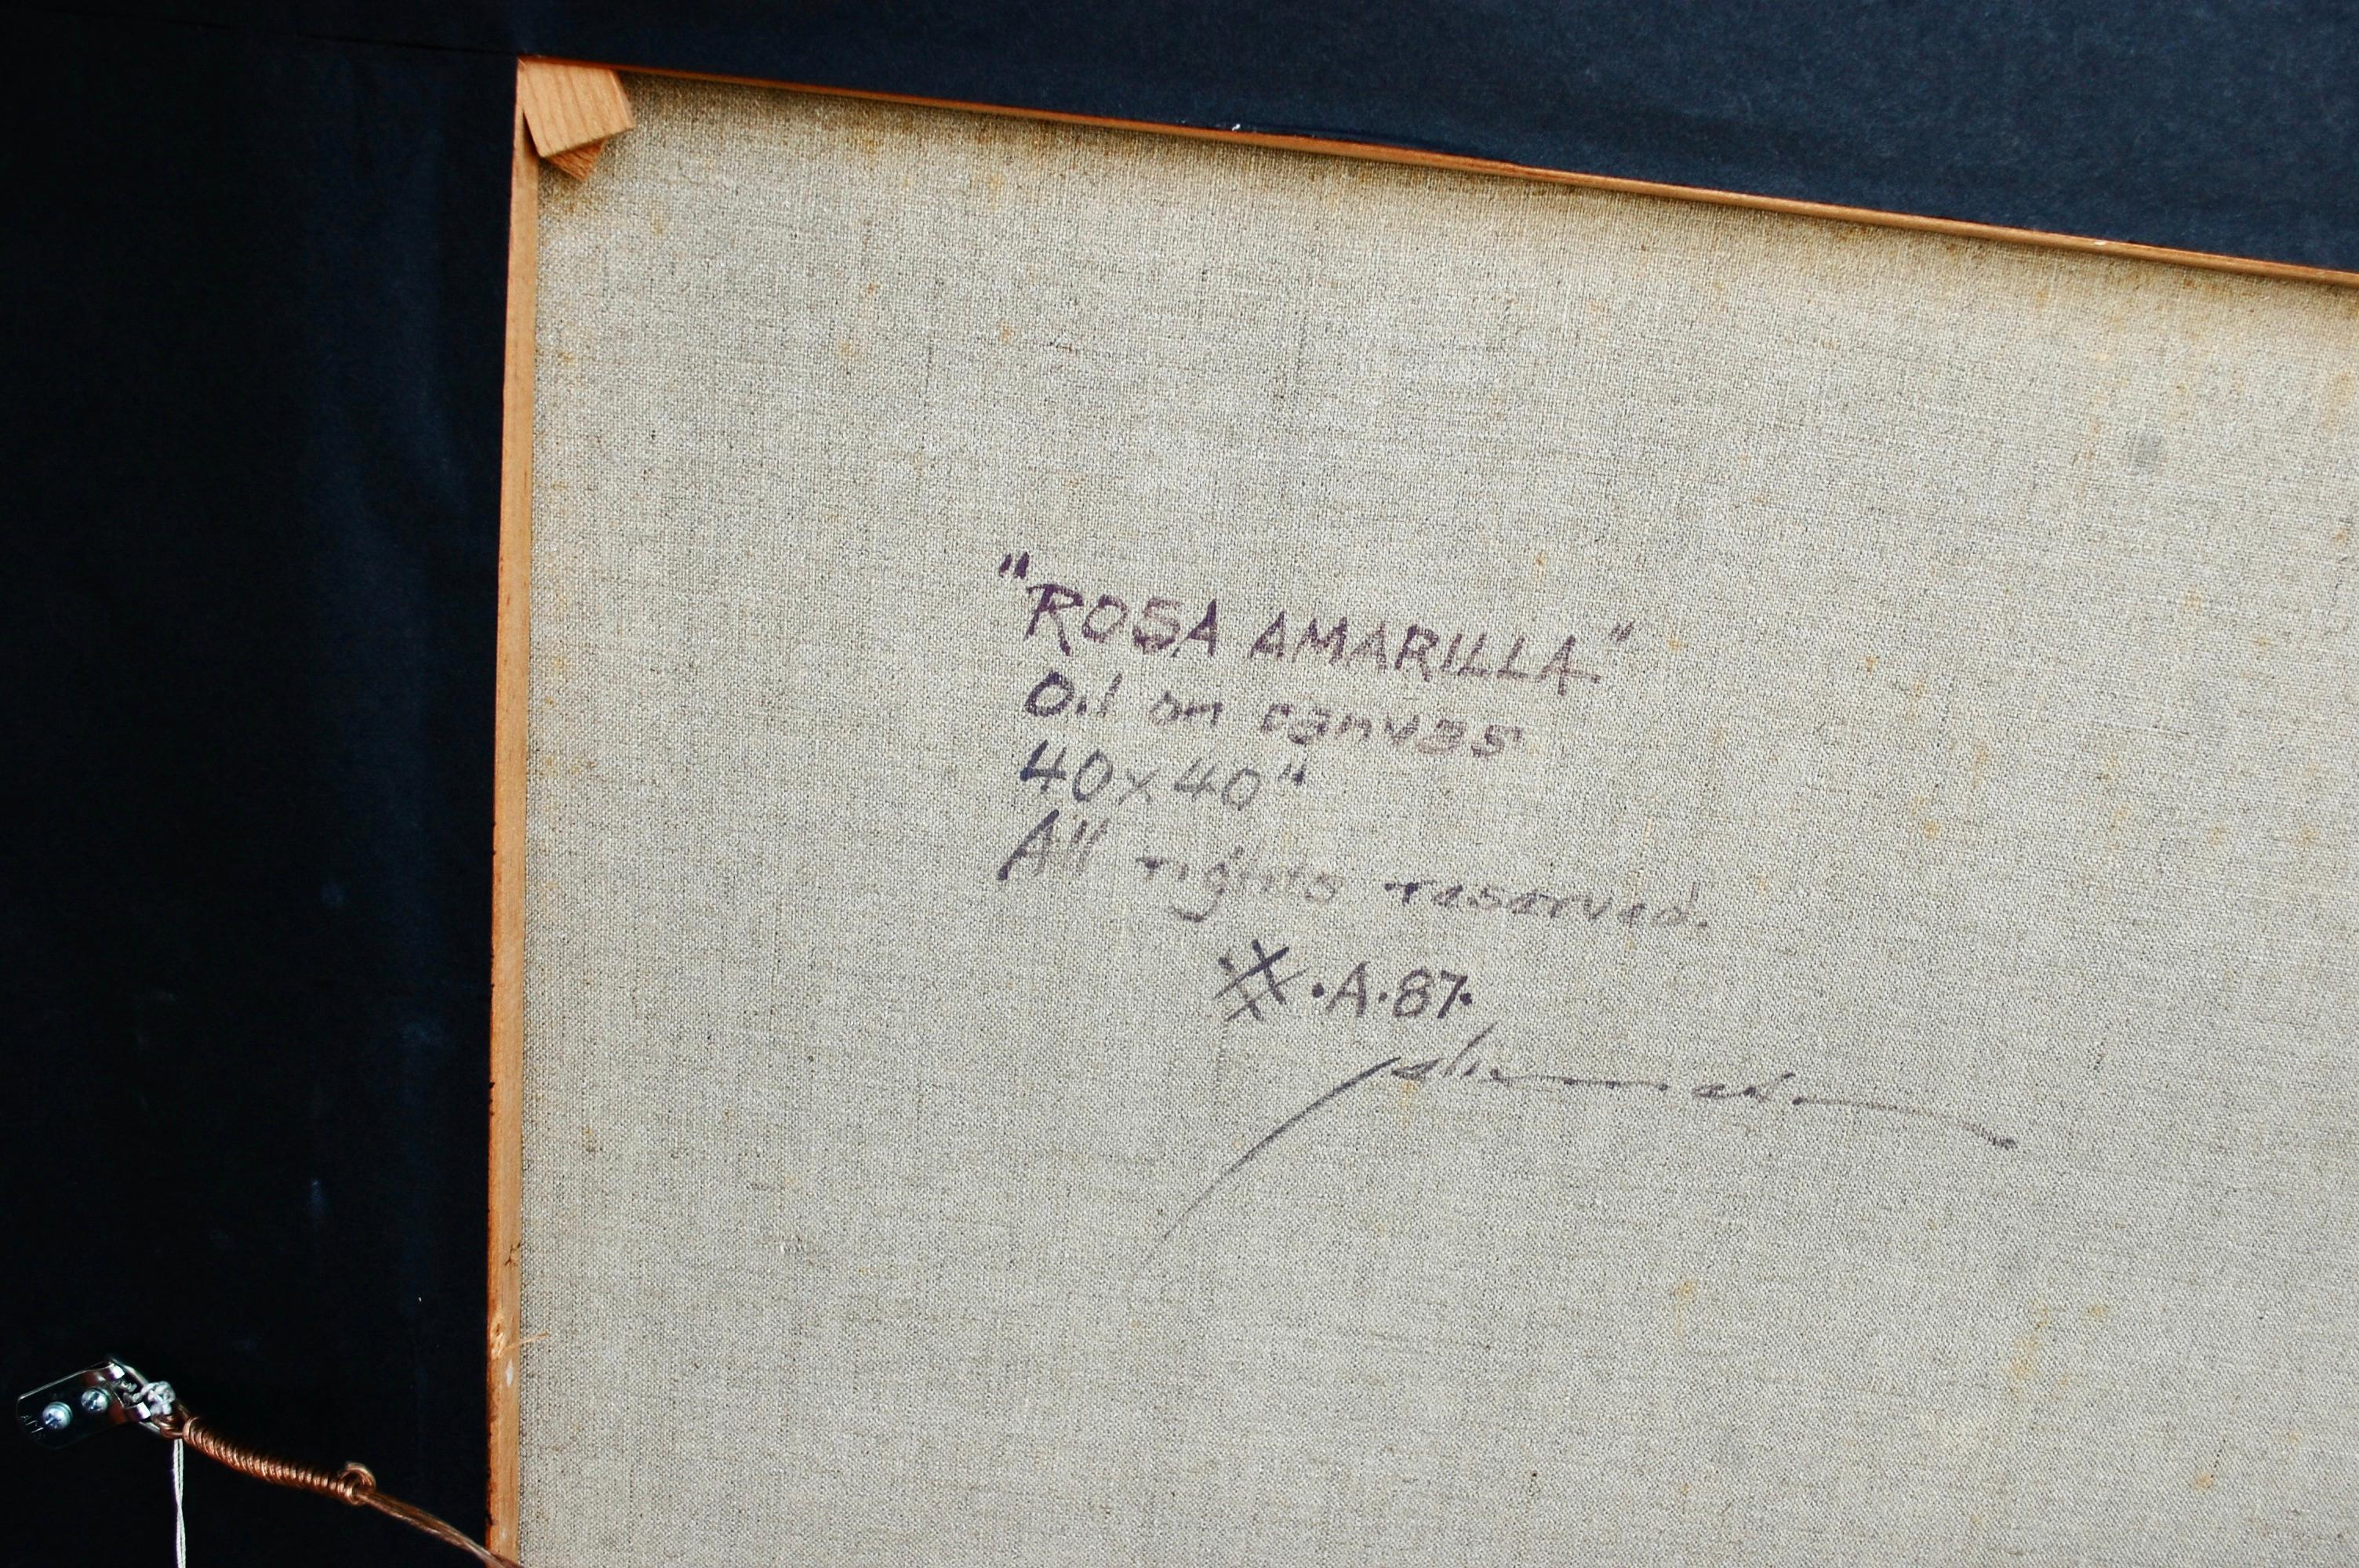 "ROSA AMARILLA"
Oil on canvas
40x40"
All rights reserved.
XX.A.87.